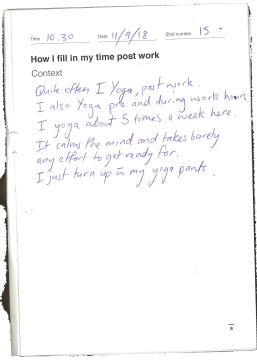 Time 10.30 Date 11/9/18 Shot number 15
How I fill in my time post work
Context
Quite often I Yoga, post work.
I also Yoga pre and during work hours
I yoga about 5 times a week here.
It calms the mind and takes barely
any effort to get ready for.
I just turn up in my yoga pants.